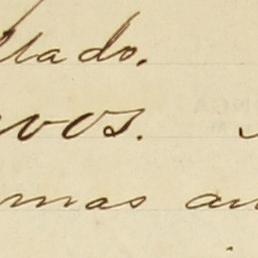 llado.
vos.
mas an